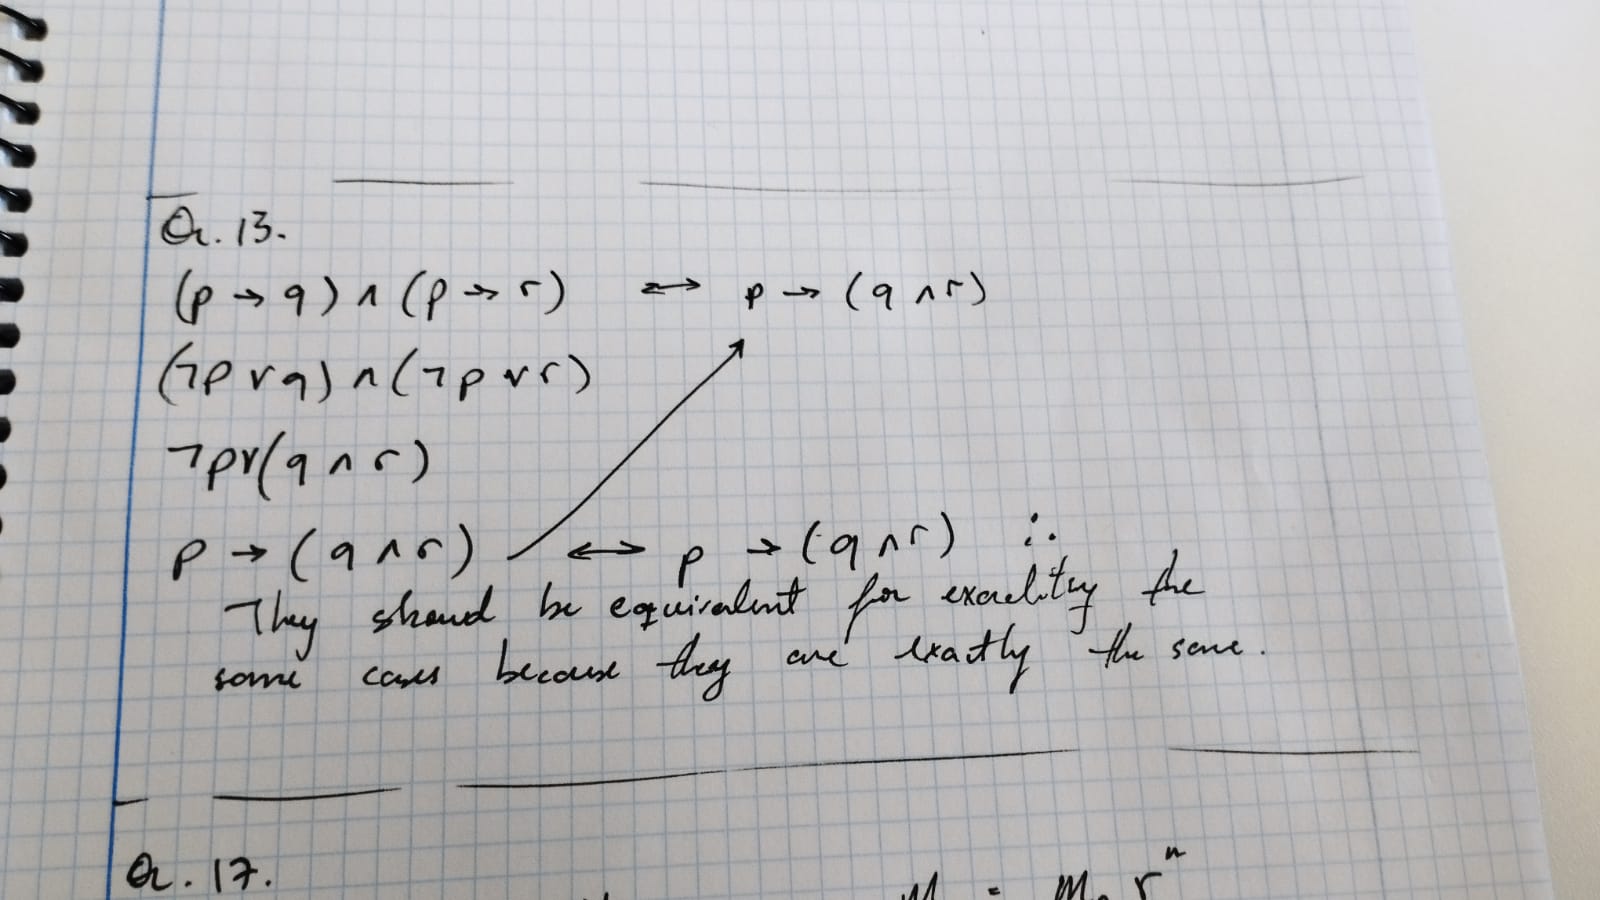 Q. 13.
(p → q) ∧ (p → r) ↔ p → (q ∧ r)
(¬p ∨ q) ∧ (¬p ∨ r)
¬p∨(q ∧ r)
p → (q ∧ r) ↔ p → (q ∧ r) ∴
They should be equivalent for the
same cases because they are exactly the same.
Q. 17.
r^n